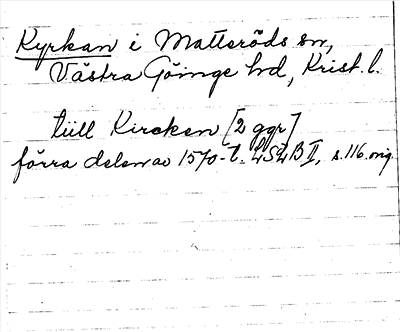 Kyrkan i Matteröds sn,
Västra Göinge hd, Krist. l.
tiill Kircken [2 ggr]
förra delen av 1570-t. LSLB II, s. 116. orig.